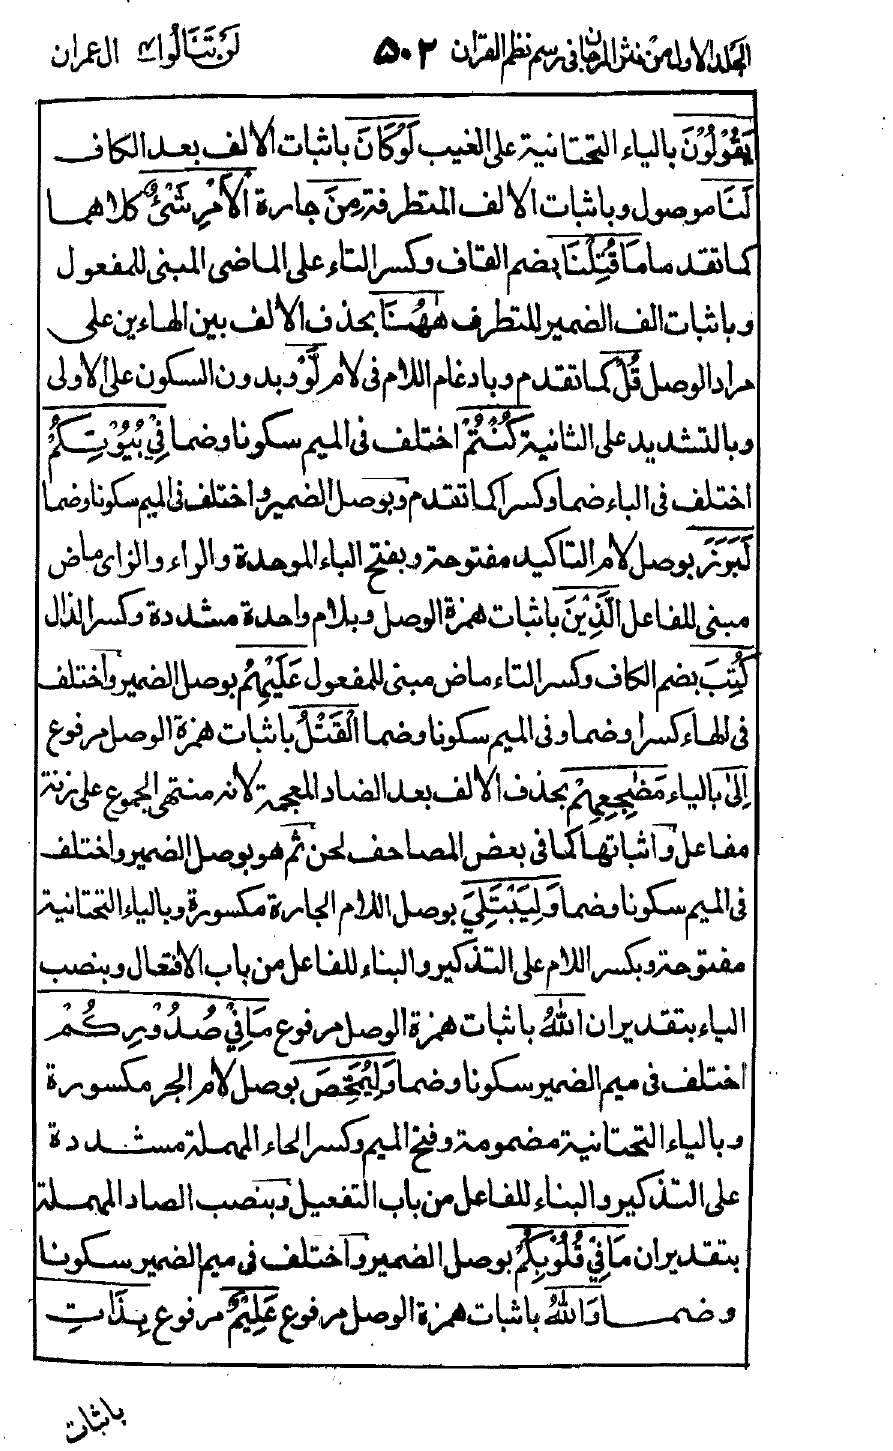 المجلد الاول من نثر المرجان في رسم نظم القران ٥٠٢ لن تنالوا ٤ ال عمران
يَقُوْلُوْنَ بالياء التحتانية على الغيب لَوْ كَانَ باثبات الالف بعد الكاف
لَنَا موصول وباثبات الالف المتطرفة مِنَ جارة الْاَمْرِ شَیْءٌ كلاهما
كما تقدما مَا قُتِلْنَا بضم القاف وكسر التاء على الماضى المبنى للمفعول
وباثبات الف الضمير للتطرف هٰهُنَا بحذف الالف بين الهاءين على
مراد الوصل قُلْ كما تقدم وبادغام اللام فى لام لَّوْ وبدون السكون على الاولى
وبالتشديد على الثانية كُنْتُمْ اختلف فى الميم سكونا وضما فِيْ بُيُوْتِكُمْ
اختلف فى الباء ضما وكسرا كما تقدم وبوصل الضمير واختلف فى الميم سكونا وضما
لَبَرَزَ بوصل لام التاكيد مفتوحة وبفتح الباء الموحدة والراء والزاى ماض
مبنى للفاعل الَّذِيْنَ باثبات همزة الوصل وبلام واحدة مشددة وكسر الذال
كُتِبَ بضم الكاف وكسر التاء ماض مبنى للمفعول عَلَيْهِمُ بوصل الضمير واختلف
فى الهاء كسرا وضما وفى الميم سكونا وضما الْقَتْلُ باثبات همزة الوصل مرفوع
اِلٰى بالياء مَضٰجِعِهِمْ بحذف الالف بعد الضاد المعجمة لانه منتهى الجموع على زنة
مفاعل واثباتها كما فى بعض المصاحف لحن ثم هو بوصل الضمير واختلف
فى الميم سكونا وضما وَلِيَبْتَلِيَ بوصل اللام الجارة مكسورة وبالياء التحتانية
مفتوحة وبكسر اللام على التذكير والبناء للفاعل من باب الافتعال وبنصب
الياء بتقدير ان اللهُ باثبات همزة الوصل مرفوع مَا فِيْ صُدُوْرِكُمْ
اختلف فى ميم الضمير سكونا وضما وَلِيُمَحِّصَ بوصل لام الجر مكسورة
وبالياء التحتانية مضمومة وفتح الميم وكسر الحاء المهملة مشددة
على التذكير والبناء للفاعل من باب التفعيل وبنصب الصاد المهملة
بتقدير ان مَا فِيْ قُلُوْبِكُمْ بوصل الضمير واختلف فى ميم الضمير سكونا
وضما وَاللهُ باثبات همزة الوصل مرفوع عَلِيْمٌ مرفوع بِذَاتِ
باثبات